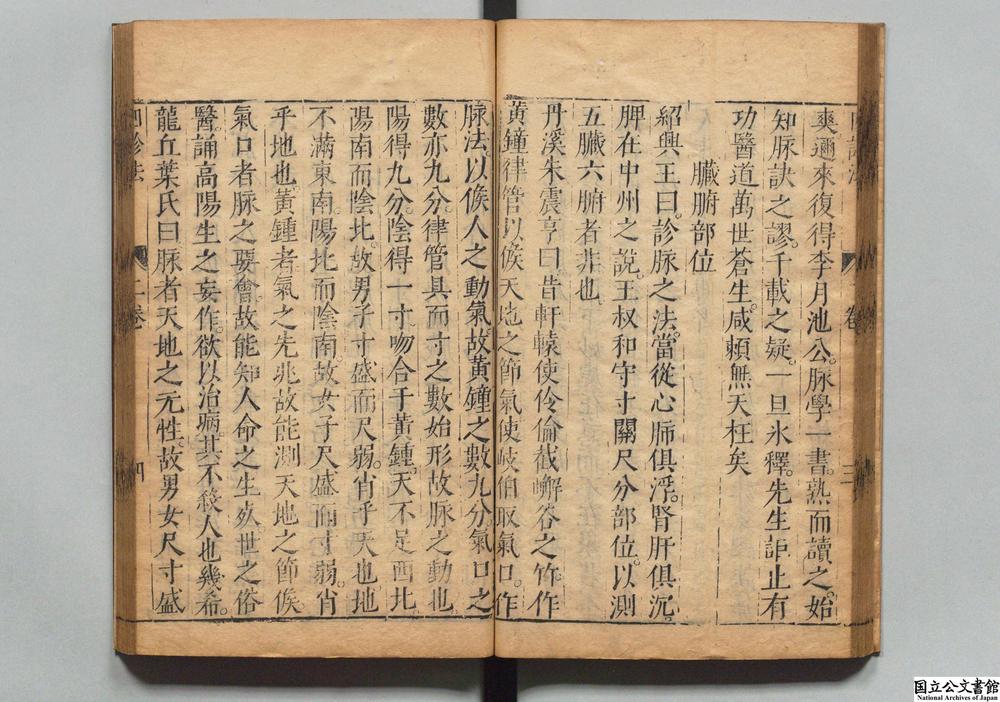 爽邇來復得李月池公。脉學一書。熟而讀之。始
知脉訣之謬。千載之疑。一旦氷釋。先生詎止有
功醫道萬世蒼生。咸頼無夭枉矣
臟腑部位
紹興王曰。診脉之法。當從心肺俱浮。腎肝俱沉。
脾在中州之說。王叔和守寸關尺分部位。以測
五臟六腑者。非也。
丹溪朱震亨曰昔軒轅使伶倫截嶰谷之竹。作
黃鐘律管以候天地之節氣使岐伯取氣口。作
脉法以候人之動氣故黃鐘之數九分。氣口之
數亦九分。律管具而寸之數始形故脉之動也
陽得九分。陰得一寸。吻合于黃鍾。天不足西北
陽南而陰北。故男子寸盛而尺弱。肖乎天也地
不滿東南。陽北而陰南。故女子尺盛而寸弱。肖
乎地也。黃鍾者。氣之先兆故能測天地之節候
氣口者脉之要會。故能知人命之生死。世之俗
醫。誦高陽生之妄作。欲以治病其不殺人也幾希。
龍丘葉氏曰脉者天地之元性。故男女尺寸盛
四診法
二卷
四
卷
三
国立公文書館
National Archives of Japan